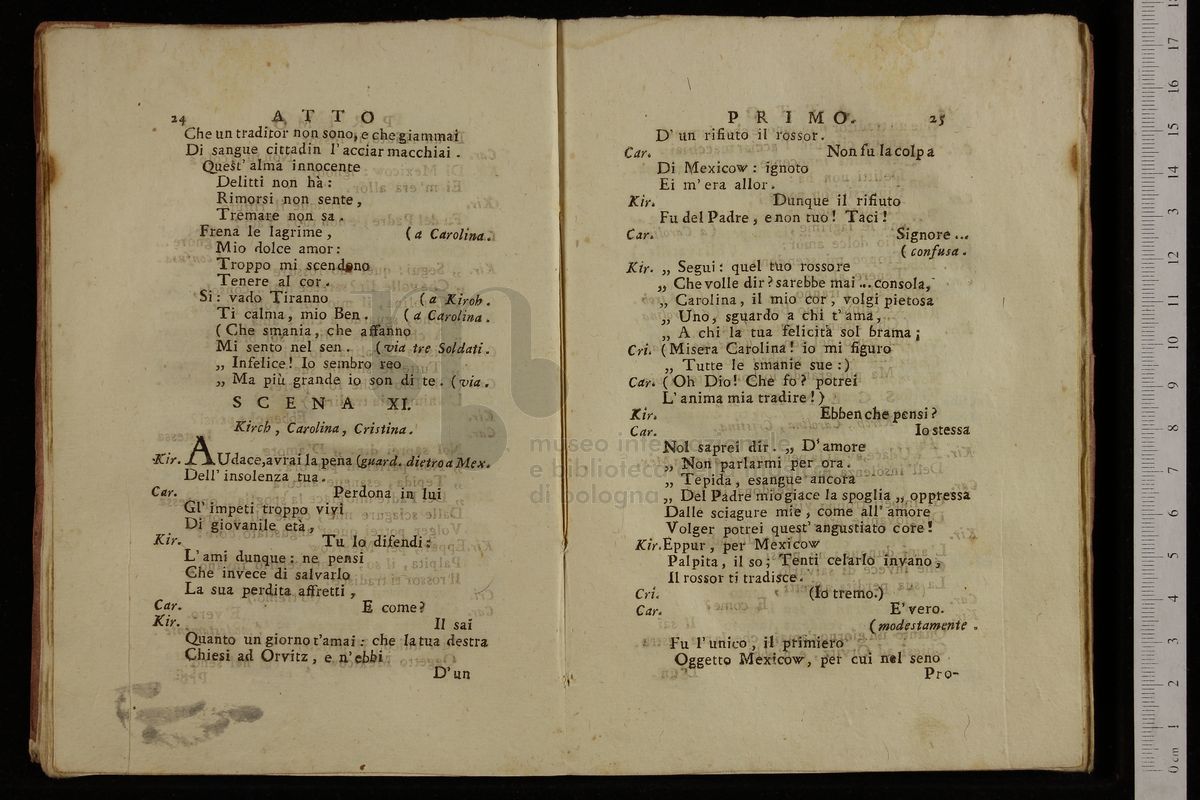 24 ATTO
Che un traditor non sono, e che giammai
Di sangue cittadin l'acciar macchiai.
Quest' alma innocente
Delitti non hà:
Rimorsi non sente,
Tremare non sa.
Frena le lagrime, (a Carolina.
Mio dolce amor:
Troppo mi scendono
Tenere al cor.
Si: vado Tiranno (a Kirch.
Ti calma, mio Ben. (a Carolina.
(Che smania, che affanno
Mi sento nel sen. (via tre Soldati.
„ Infelice! Io sembro reo
„ Ma più grande io son di te. (via.
SCENA XI.
Kirch, Carolina, Cristina.
Kir. AUdace, avrai la pena (guard. dietro a Mex.
Dell' insolenza tua.
Car. Perdona in lui
Gl' impeti troppo vivi
Di giovanile età,
Kir. Tu lo difendi:
L'ami dunque: ne pensi
Che invece di salvarlo
La sua perdita affretti,
Car. E come?
Kir. Il sai
Quanto un giorno t'amai: che la tua destra
Chiesi ad Orvitz, e n'ebbi
D'un
PRIMO. 25
D'un rifiuto il rossor.
Car. Non fu la colpa
Di Mexicow: ignoto
Ei m'era allor.
Kir. Dunque il rifiuto
Fu del Padre, e non tuo! Taci!
Car. Signore ...
(confusa.
Kir. „ Segui: quel tuo rossore
„ Che volle dir? sarebbe mai ... consola,
„ Carolina, il mio cor, volgi pietosa
„ Uno, sguardo a chi t'ama,
„ A chi la tua felicità sol brama;
Cri. (Misera Carolina! io mi figuro
„ Tutte le smanie sue:)
Car. (Oh Dio! Che fo? potrei
L'anima mia tradire!)
Kir. Ebben che pensi?
Car. Io stessa
Nol saprei dir. „ D'amore
„ Non parlarmi per ora.
„ Tepida, esangue ancora
„ Del Padre mio giace la spoglia „ oppressa
Dalle sciagure mie, come all' amore
Volger potrei quest' angustiato core!
Kir. Eppur, per Mexicow
Palpita, il so; Tenti celarlo invano,
Il rossor ti tradisce.
Cri. (Io tremo.)
Car. E' vero.
(modestamente.
Fu l'unico, il primiero
Oggetto Mexicow, per cui nel seno
Pro-
museo internazionale
e biblioteca della musica
di bologna